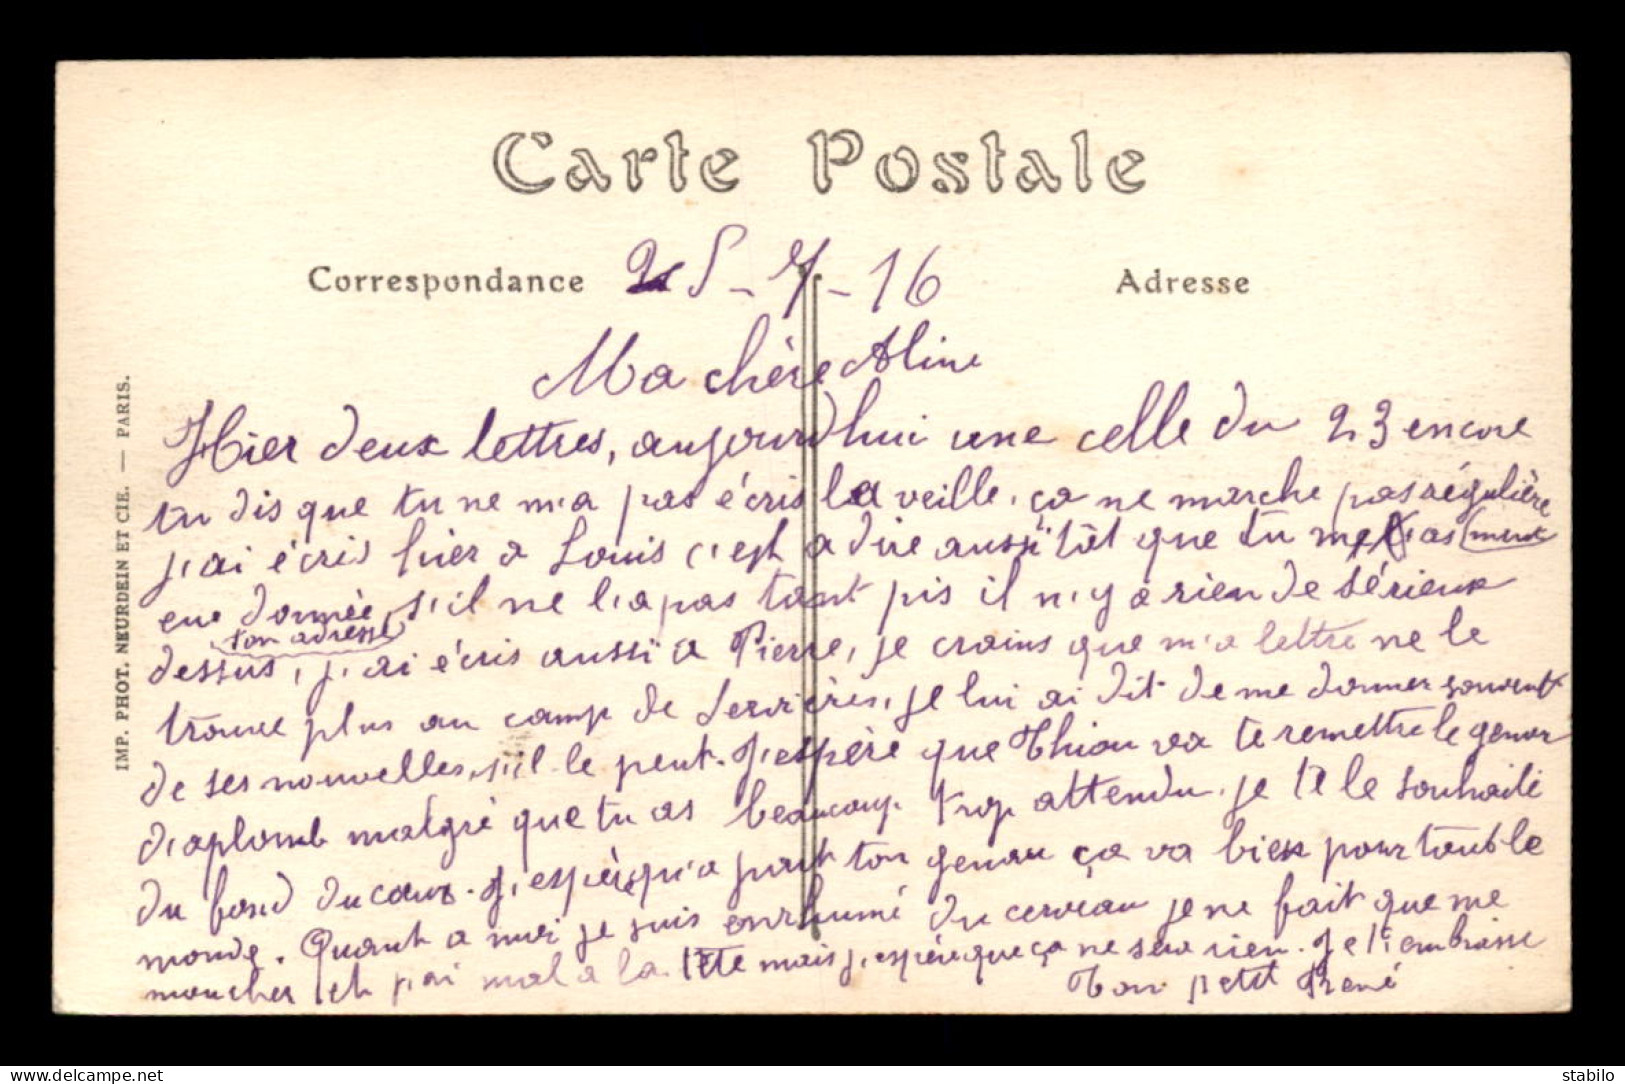 Carte Postale
Correspondance
25-7-16
Adresse
Ma chère Aline
Hier deux lettres, aujourd'hui une celle du 23 encore
tu dis que tu ne m'a pas écris la veille, ça ne marche pas régulière
ment
j'ai écris hier a Louis c'est a dire aussitôt que tu me l'as
eue donnée, s'il ne l'a pas tant pis il n'y a rien de sérieux
ton adresse
dessus, j'ai écris aussi a Pierre, je crains que m'a lettre ne le
trouve plus au camp de Servières, je lui ai dit de me donner souvent
de ses nouvelles, s'il le peut. J'espère que Thiou va te remettre le genou
d'aplomb malgré que tu as beaucoup trop attendu. je te le souhaite
du fond du cœur. J'espère qu'a part ton genou ça va bien pour tout le
monde. Quant a moi je suis enrhumé du cerveau je ne fait que me
moucher et j'ai mal a la tête mais j'espère que ça ne sera rien. Je t'embrasse
Ton petit René
IMP. PHOT. NEURDEIN ET CIE. — PARIS.
delcampe.net
stabilo